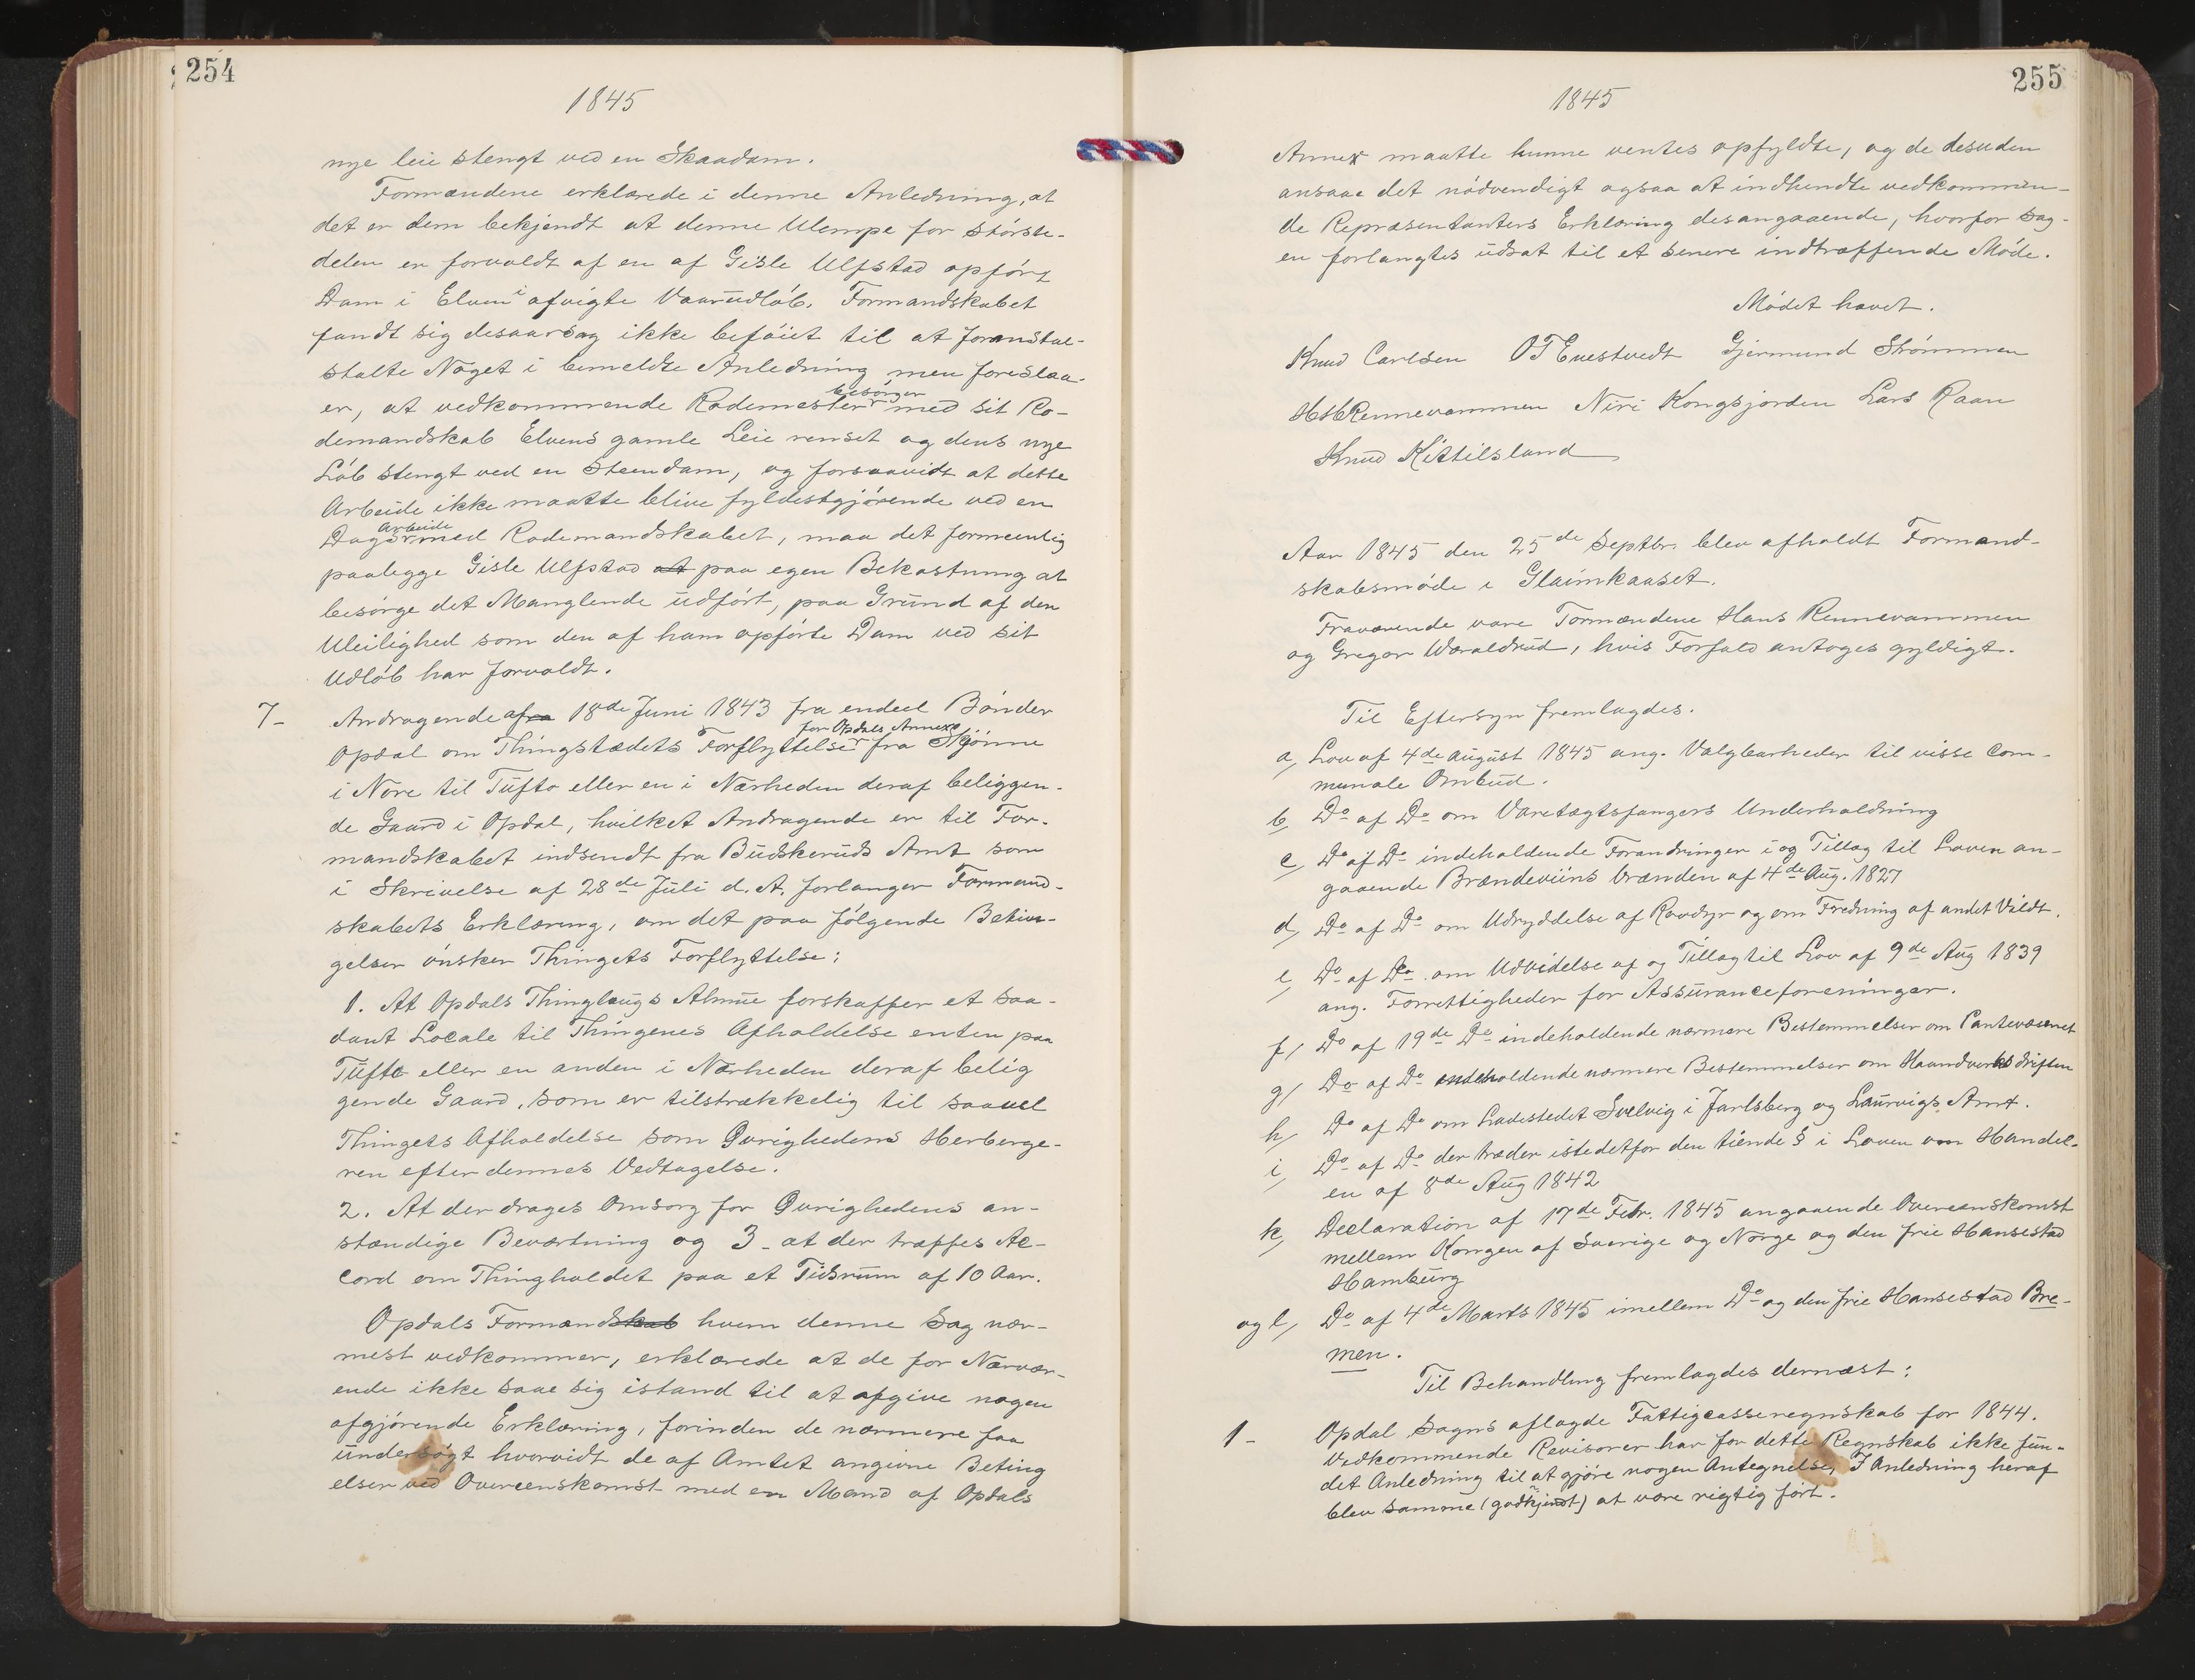 254
1845
nye leie stengt ved en Skaadam.
Formændene erklærede i denne Anledning, at
det er dem bekjendt at denne Ulempe for Störste-
delen er forvoldt af en af Gisle Ulfstad opfört
Dam i Elven i afvigte Vaarudlöb. Formandskabet
fandt sig desaarsag ikke beföiet til at foranstal-
stalte Noget i bemeldte Anledning men foreslaa-
er, at vedkommende Rodemester besörger med sit Ro-
demandskab Elvens gamle Leie renset og dens nye
Löb stengt ved en Steendam, og forsaavidt at dette
Arbeide ikke maatte blive fyldestgjörende ved en
Dags Arbeide med Rodemandskabet, maa det formeentlig
paalegge Gisle Ulfstad at paa egen Bekostning at
besörge det Manglende udfört, paa Grund af den
Uleilighed som den af ham opförte Dam ved sit
Udlöb har forvoldt.
7- Andragende af fra 18de Juni 1843 fra endeel Bönder
Opdal om Thingstædets Forflyttelse for Opdals Annex fra Skjönne
i Nore til Tufto eller en i Nærheden deraf beliggen-
de Gaard i Opdal, hvilket Andragende er til For-
mandskabet indsendt fra Budskeruds Amt som
i Skrivelse af 28de Juli d. A. forlanger Formand-
skabets Erklæring, om det paa fölgende Betin-
gelser önsker Thingets Forflyttelse:
1. At Opdals Thinglaugs Almue forskaffer et saa-
dant Locale til Thingenes Afholdelse enten paa
Tufte eller en anden i Nærheden deraf belig
gende Gaard, som er tilstrækkelig til saavel
Thingets Afholdelse som Øvrighedens Herberge-
ren efter dennes Vedtagelse.
2. At der drages Omsorg for Øvrighedens an-
stændige Beværtning og 3- at der træffes Ac-
cord om Thingholdet paa et Tidsrum af 10 Aar.
Opdals Formandskab hvem denne Sag nær-
mest vedkommer, erklærede at de for Nærvær-
ende ikke saae sig istand til at afgive nogen
afgjörende Erklæring, forinden de nærmere faa
undersögt hvorvidt de af Amtet angivne Beting
elser ved Overeenskomst med en Mand af Opdals
255
1845
Annex maatte kunne ventes opfyldte, og de desuden
ansaae det nödvendigt ogsaa at indhendte vedkommen-
de Repræsentanters Erklæring desangaaende, hvorfor Sag-
en forlangtes udsat til et senere indtræffende Möde.
Mödet hævet.
Knud Carlsen OTEvestvedt Gjermund Strömmen
HHRennevammen Niri Kongsjorden Lars Raan
Knud Kittilsland
Aar 1845 den 25de Septbr. blev afholdt Formand-
skabsmöde i Glaimkaaset.
Fraværende vare Formændene Hans Rennevammen
og Gregar Waraldrud, hvis Forfald antoges gyldigt.
Til Eftersyn fremlagdes.
a, Lov af 4de August 1845 ang. Valgbarheder til visse Com-
munale Ombud.
b, Do af Do om Varetægtsfangers Underholdning
c, Do af Do indeholdende Forandringer i og Tillæg til Loven an-
gaaende Brændeviins brænden af 4de Aug. 1827
d, Do af Do om Udryddelse af Rovdyr og om Fredning af andet Vildt.
e, Do af Do om Udvidelse af og Tillæg til Lov af 9de Aug 1839
ang. Forrettigheder for Assuranceforeninger.
f, Do af 19de Do indeholdende nærmere Bestemmelser om Pantevæsenet
g, Do af Do indeholdende nærmere Bestemmelser om Haandværksdriften
h, Do af Do om Ladestedet Svelvig i Jarlsberg og Laurvigs Amt.
i, Do af Do der træder istedetfor den tiende § i Loven om Handel-
en af 8de Aug 1842
k, Declaration af 17de Febr. 1845 angaaende Overeenskomst
mellem Kongen af Sverige og Norge og den frie Hansestad
Hamburg
og l, Do af 4de Marts 1845 imellem Do og den frie Hansestad Bre-
men.
Til Behandling fremlagdes dernæst:
1- Opdal Sogns aflagde Fattigcasseregnskab for 1844.
Vedkommende Revisorer har for dette Regnskab ikke fun-
det Anledning til at gjöre nogen Antegnelse, I Anledning heraf
blev samme (godkjendt) at være rigtig fört.